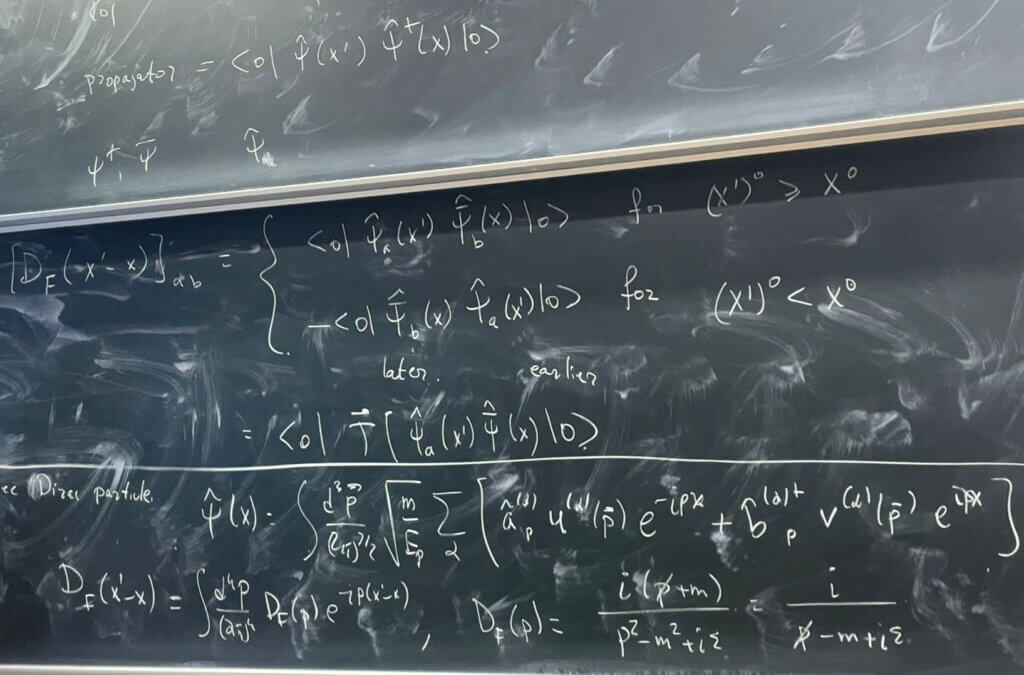 propagator = <0| ψ̂(x') ψ̂†(x) |0>
ψ†, ψ̄ ψ̂a
[D_F(x'-x)]_ab = { <0| ψ̂_a(x') ψ̄̂_b(x) |0> for (x')⁰ ⩾ x⁰
-<0| ψ̄̂_b(x) ψ̂_a(x') |0> for (x')⁰ < x⁰
later. earlier
= <0| T [ψ̂_a(x') ψ̄̂(x) |0>
Dirac particle. ψ̂(x) = ∫ d³p̄/(2π)^{3/2} √(m/E_p) Σ_α [ â_p^{(α)} u^{(α)}(p̄) e^{-ipx} + b̂_p^{(α)†} v^{(α)}(p̄) e^{ipx} ]
D_F(x'-x) = ∫ d⁴p/(2π)⁴ D_F(p) e^{-ip(x'-x)} , D_F(p) = i(p̸+m)/(p²-m²+iε) = i/(p̸-m+iε)